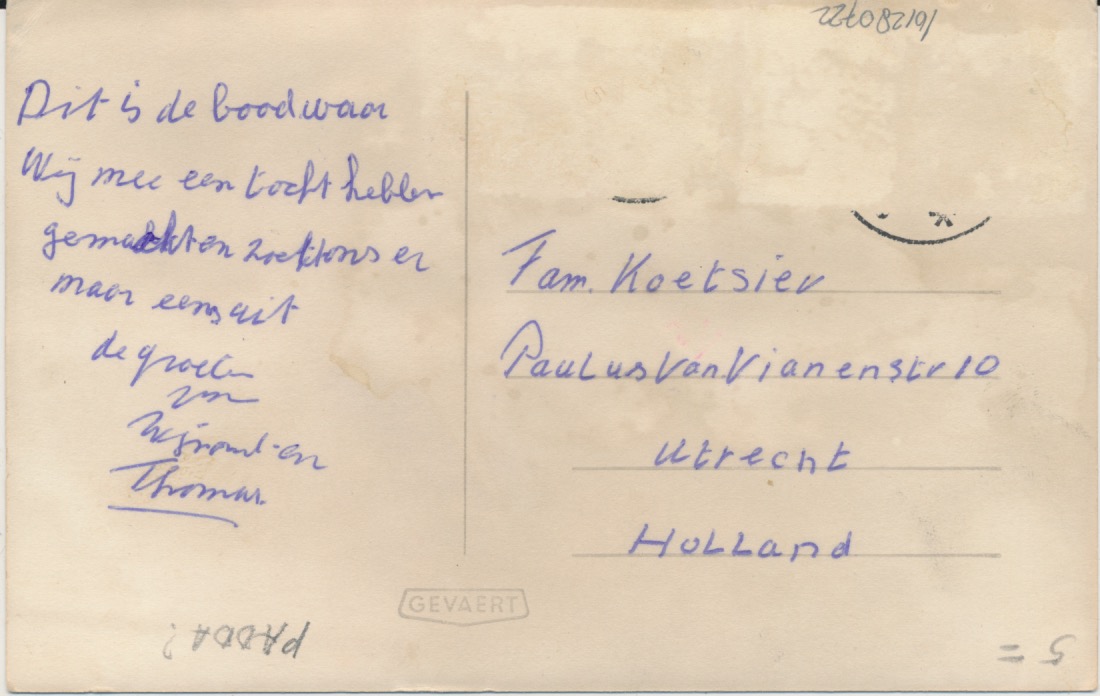 Dit is de bood waar
Wij mee een tocht hebben
gemaakt en zoekt ons er
maar eens uit
de groeten
van
en
Thomas
Fam. Koetsier
Paulus van Vianenstr 10
Utrecht
Holland
GEVAERT
PADDA?
5 =